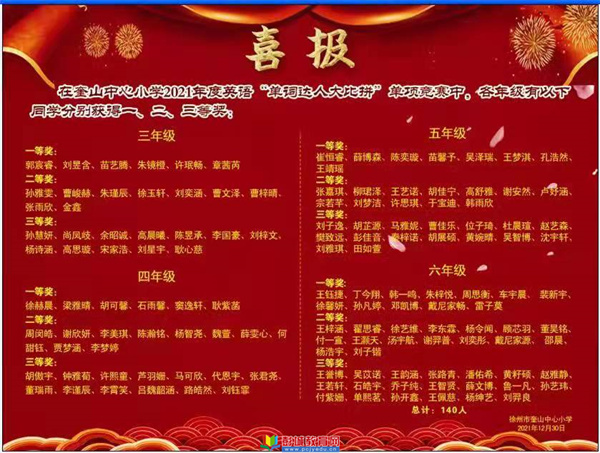 喜报
在奎山中心小学2021年度英语“单词达人大比拼”单项竞赛中，各年级有以下
同学分别获得一、二、三等奖：
三年级
一等奖：
郭宸睿、刘昱含、苗艺腾、朱镜橙、许珉畅、章茜芮
二等奖：
孙雅雯、曹峻赫、朱瑾辰、徐玉轩、刘奕涵、曹文泽、曹梓晴、
张雨欣、金鑫
三等奖：
孙慧妍、尚凤歧、余昭诚、高晨曦、陈昱承、李国豪、刘梓文、
杨诗涵、高思璇、宋家浩、刘星宇、耿心慈
四年级
一等奖：
徐赫晨、梁雅晴、胡可馨、石雨馨、窦逸轩、耿紫菡
二等奖：
周闵皓、谢欣妍、李美琪、陈瀚铭、杨智尧、魏萱、薛雯心、何
甜钰、贾梦涵、李梦婷
三等奖：
胡傲宇、钟雅萄、许熙童、芦羽姗、马可欣、代恩宇、张君尧、
董瑞雨、李谨辰、李霄笑、吕魏韶涵、路皓然、刘钰霏
五年级
一等奖：
崔恒睿、薛博森、陈奕璇、苗馨予、吴泽瑞、王梦淇、孔浩然、
王靖瑶
二等奖：
张嘉琪、柳珺泽、王艺诺、胡佳宁、高舒雅、谢安然、卢妤涵、
宗若芊、刘梦洁、许思琪、于宝迪、韩雨欣
三等奖：
刘子逸、胡芷源、马雅妮、曹佳乐、位子琦、杜晨瑄、赵艺森、
樊致远、彭佳音、秦梓诺、胡展硕、黄婉晴、吴智博、沈宇轩、
刘雅琪、田如萱
六年级
一等奖：
王钰捷、丁今翔、韩一鸣、朱梓悦、周思衡、车宇晨、裴新宇、
徐馨妍、孙凡婷、邓凯博、戴尼家畅、雷子莫
二等奖：
王梓涵、翟思睿、徐艺维、李东霖、杨令闻、顾芯羽、董昊铭、
付一宣、王颢天、汤宇航、谢羿普、刘奕彤、戴尼家源、邵晨、
杨浩宇、刘子锴
三等奖：
王誉博、吴苡诺、王韵涵、张路青、潘佑希、黄籽硕、赵雅静、
王若轩、石皓宇、乔子纯、王智贤、薛文博、鲁一凡、孙艺玮、
付紫姗、单熙茗、孙开鑫、王佩慈、杨绅艺、刘羿良
总计：140人
徐州市奎山中心小学
2021年12月30日
彭城教育网
www.pcjyedu.cn